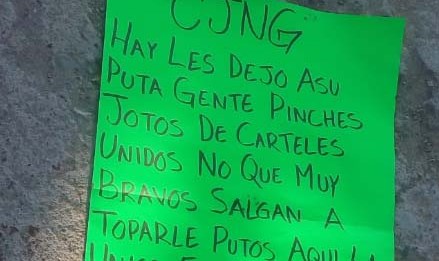 CJNG
HAY LES DEJO ASU
PUTA GENTE PINCHES
JOTOS DE CARTELES
UNIDOS NO QUE MUY
BRAVOS SALGAN A
TOPARLE PUTOS AQUI